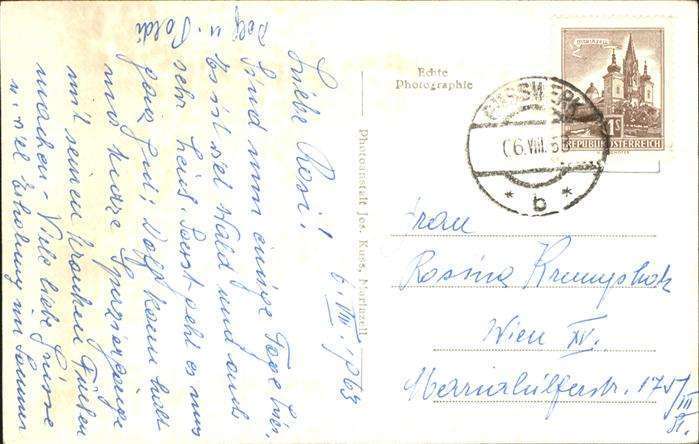 Liebe Rosi! 6. VIII. 1963
Sind nun einige Tage hier.
Es ist viel Wald und auch
sehr heiß. Sonst geht es uns
ganz gut; Dolf kann halt
nur kurze Spaziergänge
mit seinen kranken Füßen
machen – Viele liebe Grüsse
u. viel Erholung im Sommer
Dolf u. Poldi
Echte
Photographie
Photoanstalt Jos. Kuss, Mariazell
MARIAZELL
1S
REPUBLIK ÖSTERREICH
6.VIII.6
* b *
Frau
Rosina
Wien XV.
Mariahilferstr. 175/
III
St.